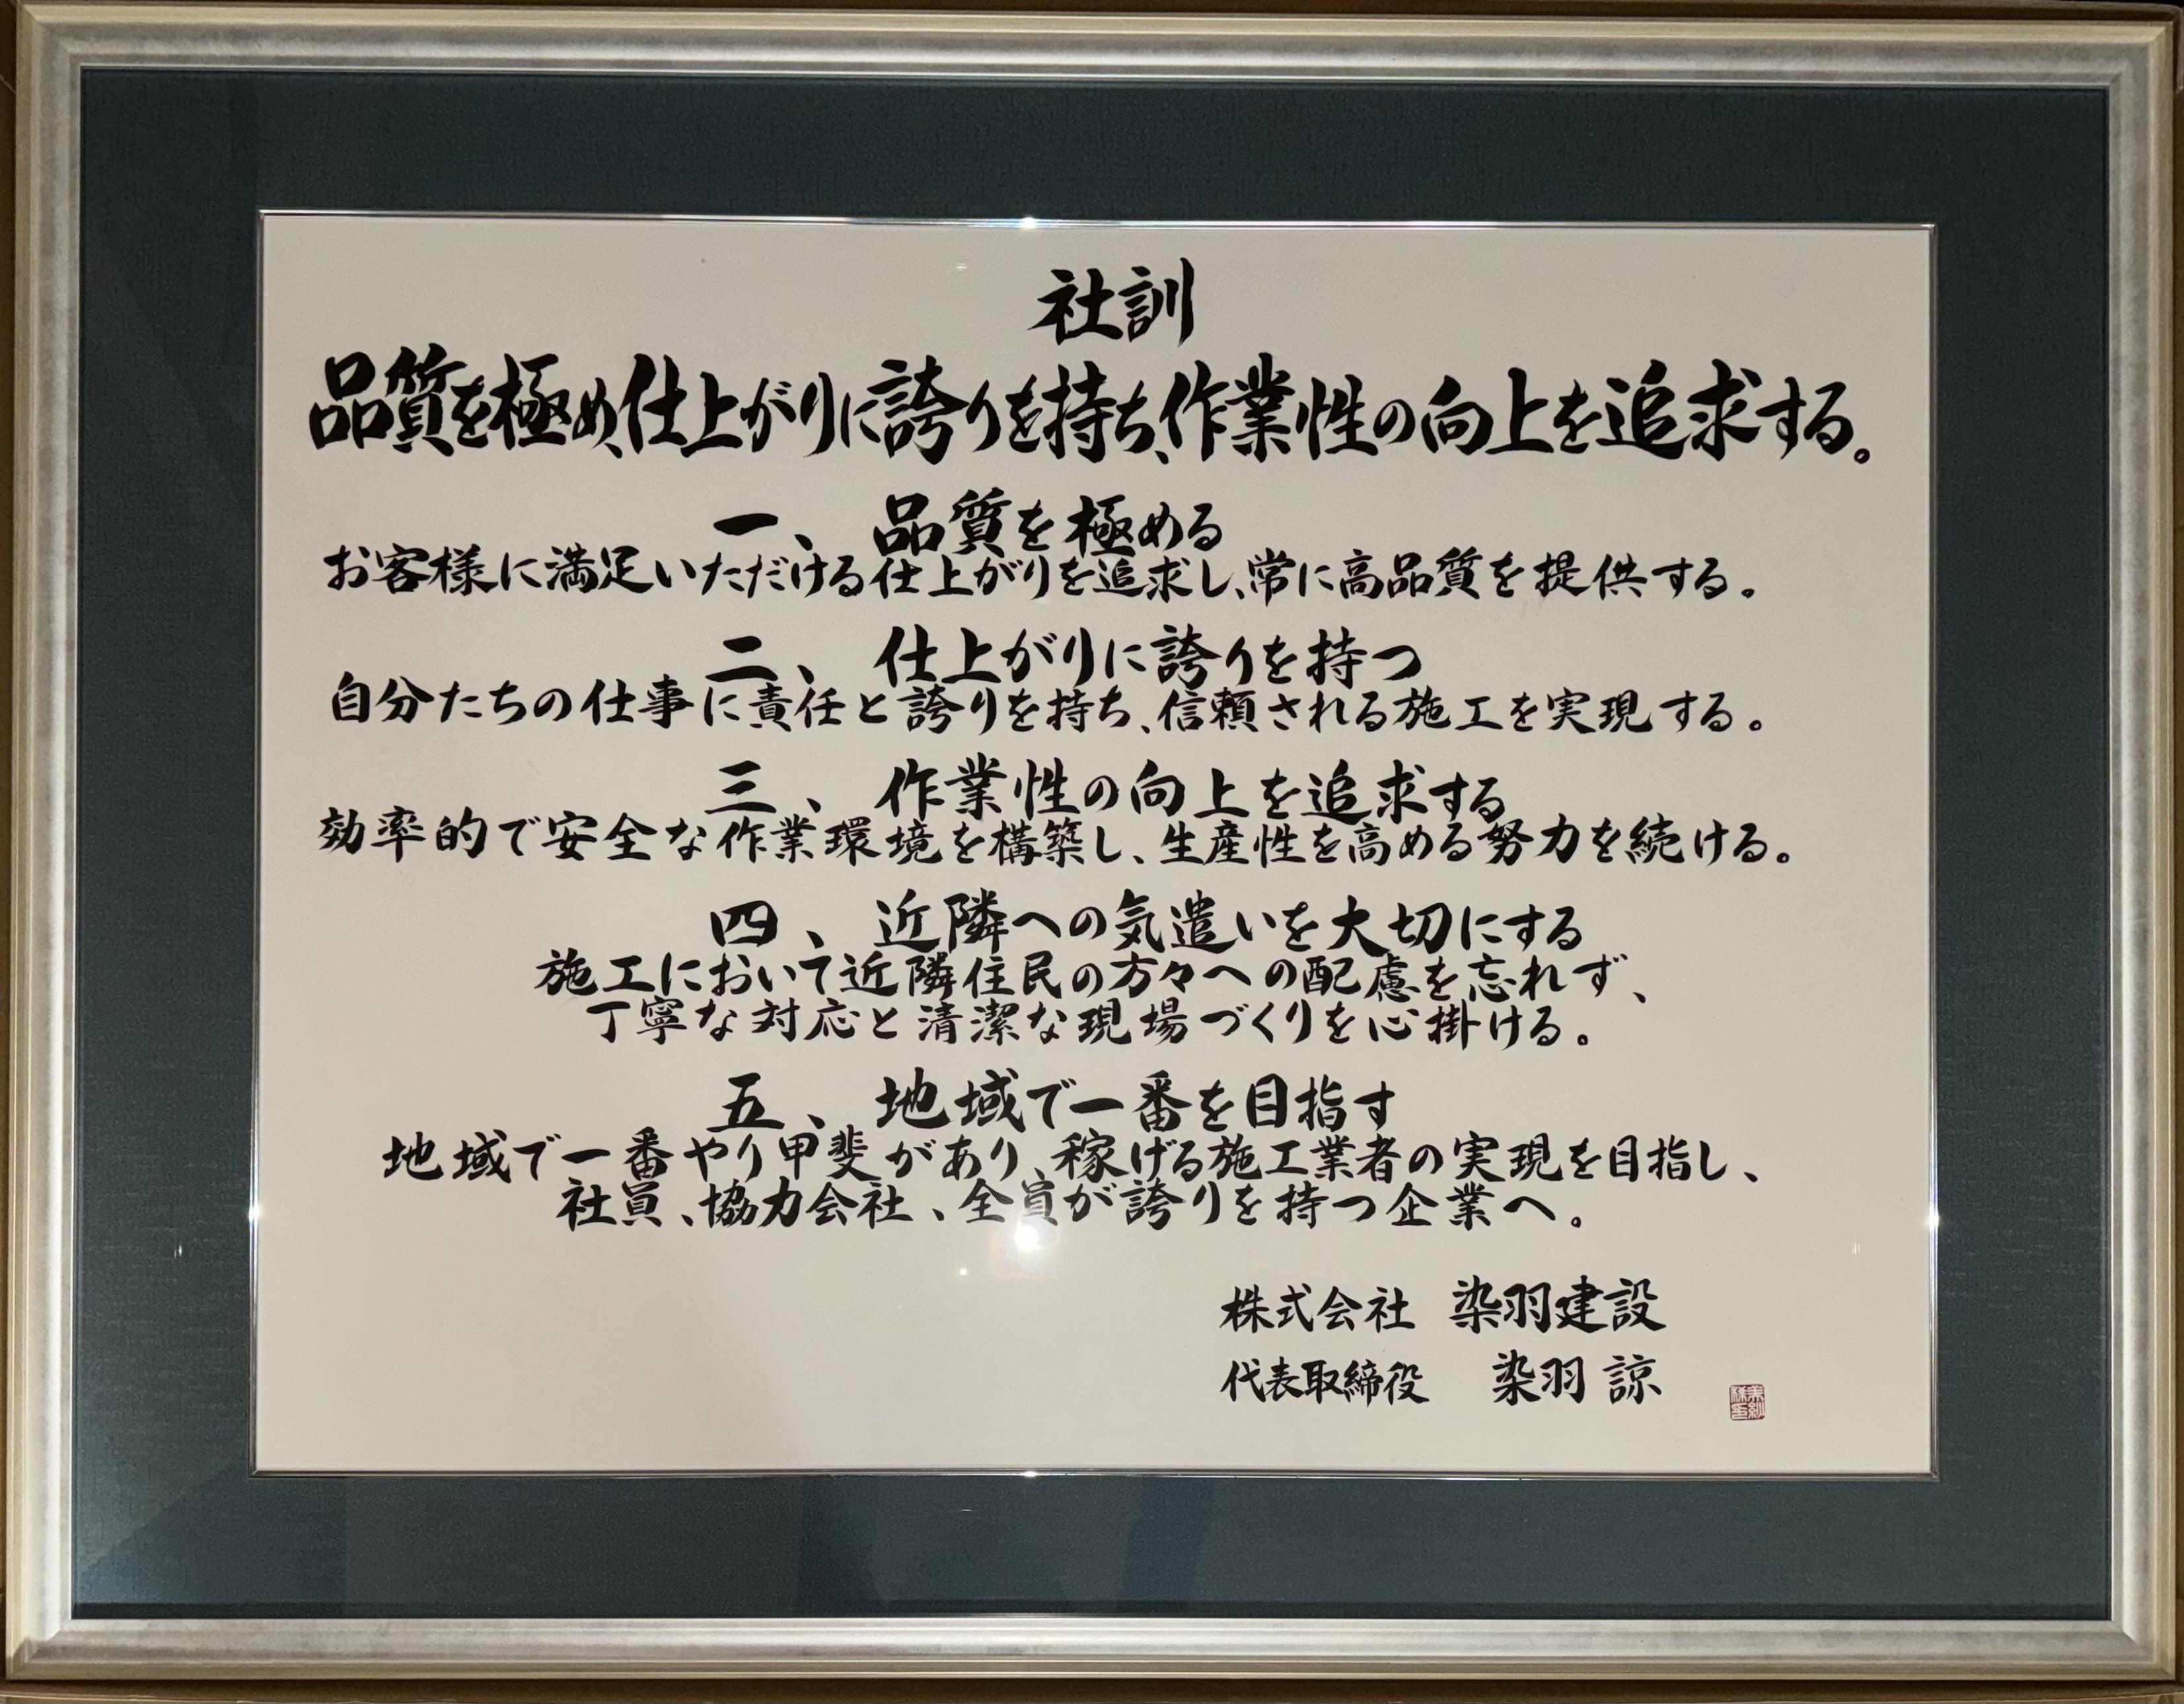 社訓
品質を極め、仕上がりに誇りを持ち、作業性の向上を追求する。
一、 品質を極める
お客様に満足いただける仕上がりを追求し、常に高品質を提供する。
二、 仕上がりに誇りを持つ
自分たちの仕事に責任と誇りを持ち、信頼される施工を実現する。
三、 作業性の向上を追求する
効率的で安全な作業環境を構築し、生産性を高める努力を続ける。
四、 近隣への気遣いを大切にする
施工において近隣住民の方々への配慮を忘れず、
丁寧な対応と清潔な現場づくりを心掛ける。
五、 地域で一番を目指す
地域で一番やり甲斐があり、稼げる施工業者の実現を目指し、
社員、協力会社、全員が誇りを持つ企業へ。
株式会社 染羽建設
代表取締役 染羽 諒